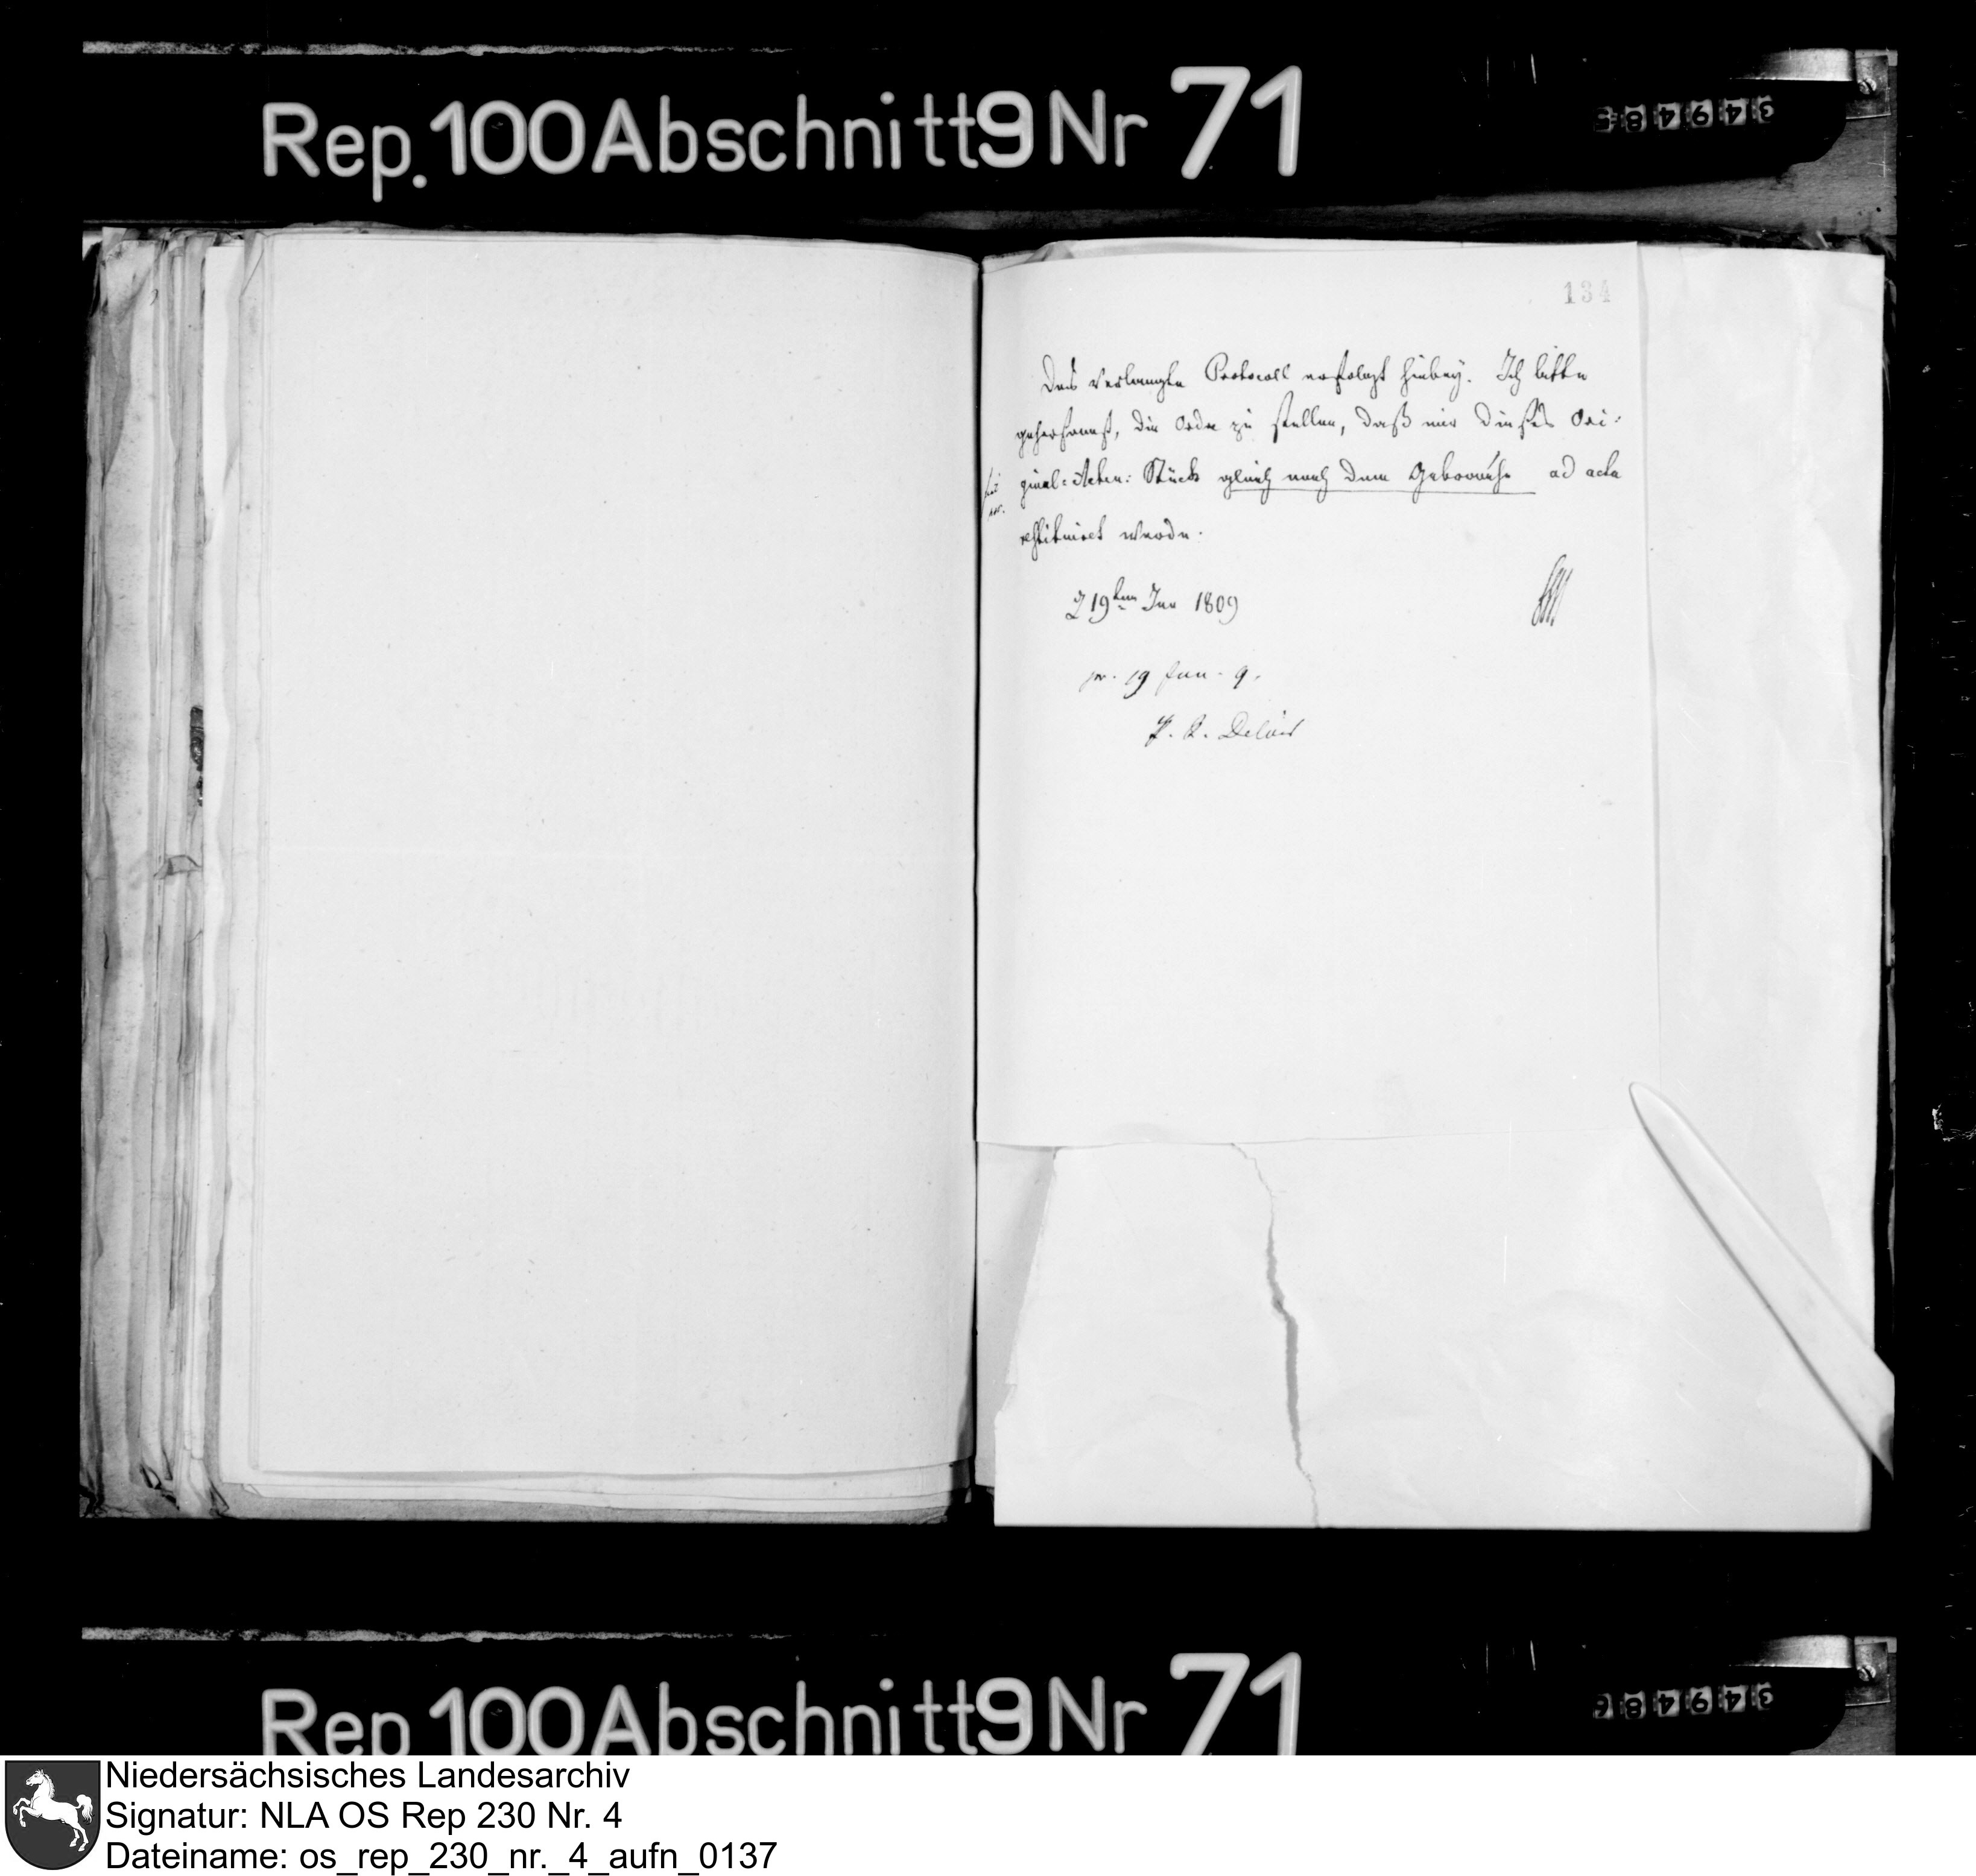 Rep. 100 Abschnitt 9 Nr 71
134
Das verlangte Protocoll erfolgt hiebey. Ich bitte
gehorsamst, die Ordre zu stellen, daß mir dieses Ori-
ginal-Acten-Stück gleich nach dem Gebrauche ad acta
restituiret werde.
19ten Jan 1809
pr. 19 Jan. 9.
Rep 100 Abschnitt 9 Nr 71
Niedersächsisches Landesarchiv
Signatur: NLA OS Rep 230 Nr. 4
Dateiname: os_rep_230_nr._4_aufn_0137